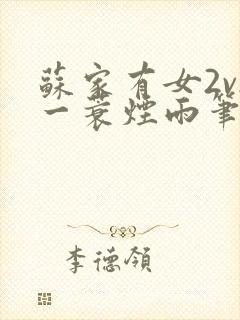 蘇家有女2v
一蓑煙雨筆
李德領